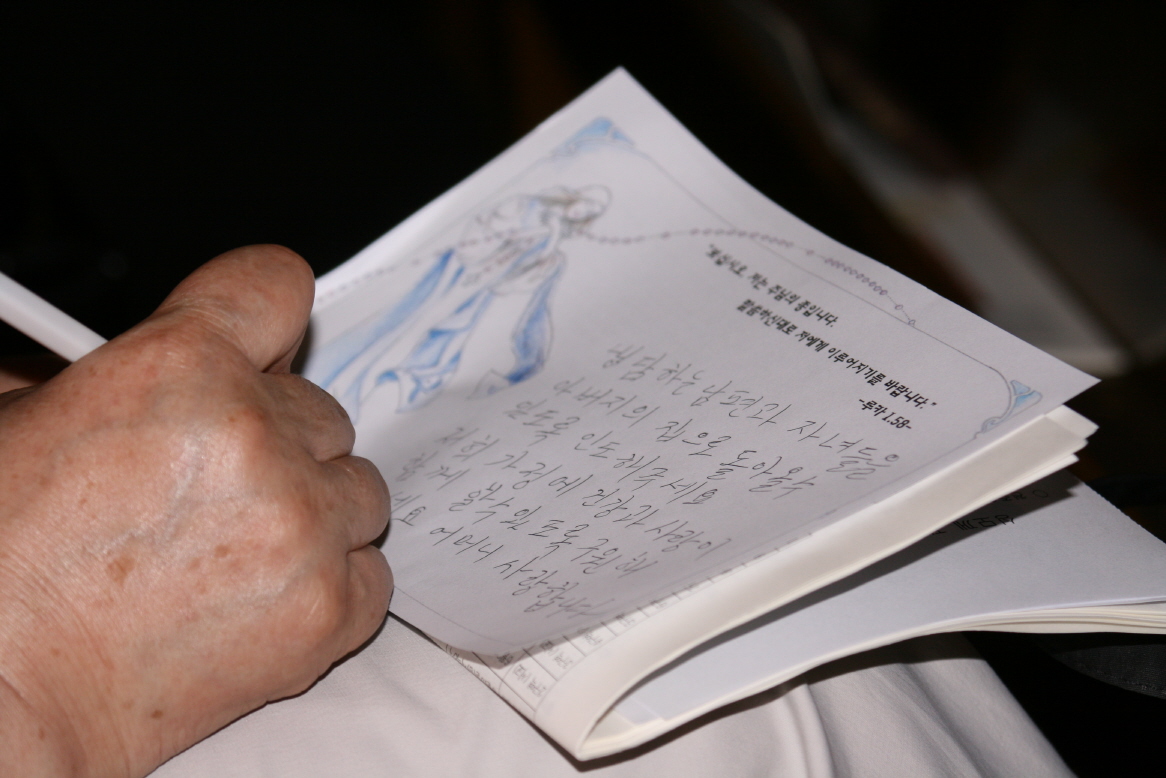 "보십시오, 저는 주님의 종입니다.
말씀하신대로 저에게 이루어지기를 바랍니다."
-루카 1.58-
냉담하는 남편과 자녀들을
아버지의 집으로 돌아올수
있도록 인도해주세요
저희 가정에 건강과 사랑이
있도록 구원해
세요 어머니 사랑합니다